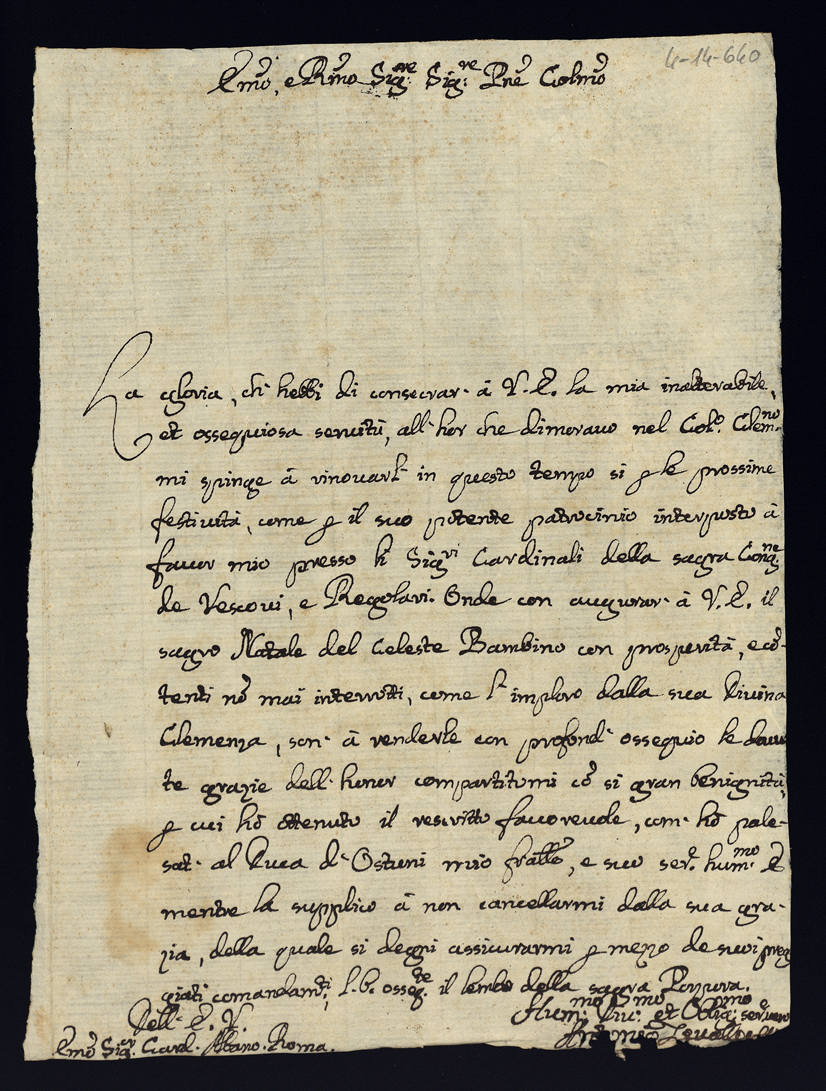 4-14-640
Emo, e Rmo Sig.re Sig.re Pne Colmo
La gloria, ch' hebbi di consecrar' à V. E. la mia inalterabile,
et ossequiosa servitù, all'hor che dimoravo nel Col.o Clem.no
mi spinge à rinovarl' in questo tempo si p le prossime
festività, come p il suo potente patrocinio interposto à
favor mio presso li Sig.ri Cardinali della sagra Cong.ne
de Vescovi, e Regolari. Onde con augurar' à V. E. il
sagro Natale del Celeste Bambino con prosperità, e cō-
tenti nō mai interrotti, come l' imploro dalla sua Divina
Clemenza, son' à renderle con profond' ossequio le dovu
te grazie dell' honor compartitomi cō si gran benignità,
p cui hò ottenuto il rescritto favorevole, com' hò pale-
sat' al Duca d' Ostuni mio fratello, e suo ser.e hum.mo E
mentre la supplico à non cancellarmi dalla sua gra-
zia, della quale si degni assicurarmi p mezo de suoi preg
giati comandam.ti, l. b. osseq.te il lembo della sagra Porpora.
Dell' E. V.
Hum.mo Div.mo et Oblig.mo serv.re
Emo Sig.r Card. Albano. Roma.
Antonio